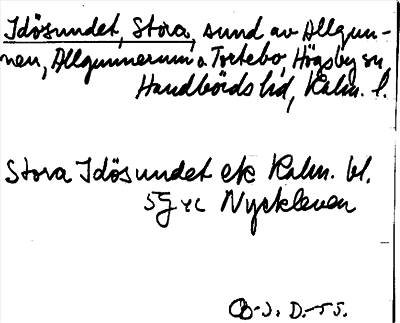 Idösundet, Stora, sund av Allgun-
nen, Allgunnerum o Tortebo, Högsby sn,
Handbörds hd, Kalm. l.
Stora Idösundet ek Kalm. bl.
5G Nyckleven
D. -55.